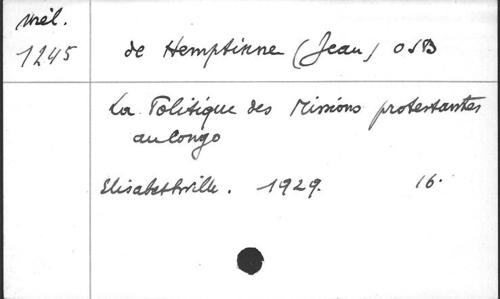 Mél.
1245
de Hemptinne (Jean) OSB
La Politique des Missions protestantes
au Congo
Elisabethville. 1929. 16.